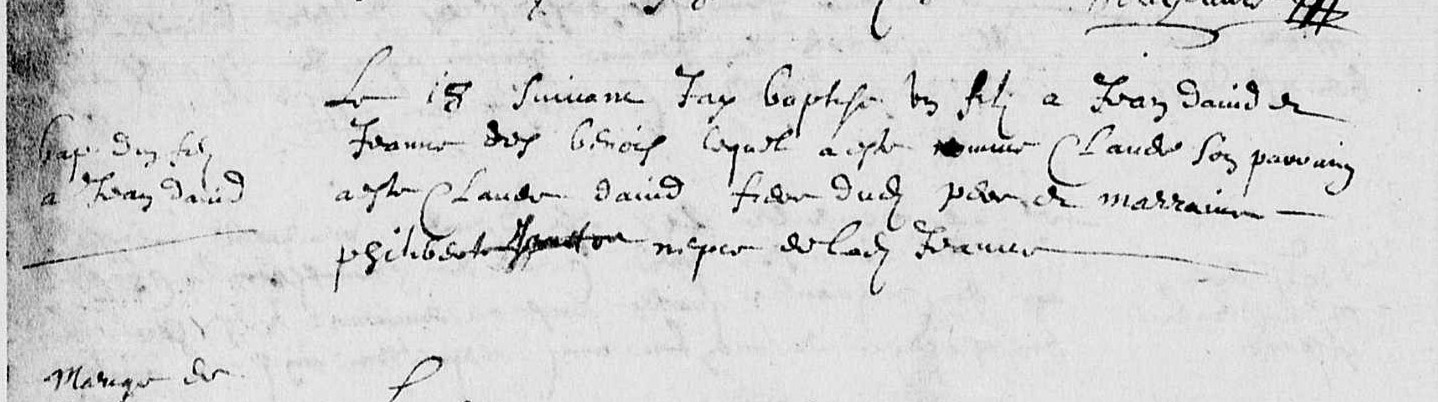 Le 18 suivant Jay baptise un filz a Jean david et
Jeanne des benois lequel a este nomme Claude son parrain
a este Claude david frere dud pere et marraine
philiberte niepce de lad Jeanne
bap dun filz
a Jean david
Mariage de